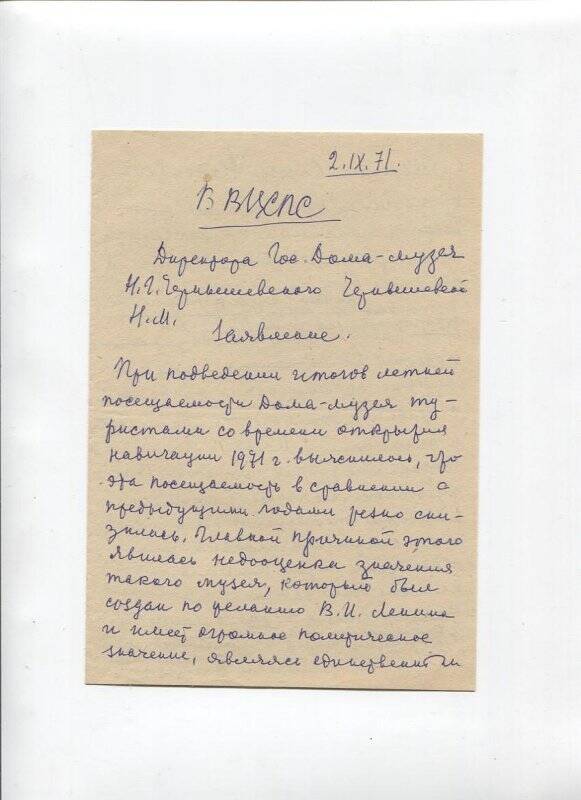 2.IX.71.
В ВЦСПС
Директора Гос. Дома-музея
Н.Г. Чернышевского Чернышевской
Н.М.
Заявление.
При подведении итогов летней
посещаемости Дома-музея ту-
ристами со времени открытия
навигации 1971 г. выяснилось, что
эта посещаемость в сравнении с
предыдущими годами резко сни-
зилась. Главной причиной этого
явилась недооценка значения
такого музея, который был
создан по желанию В.И. Ленина
и имеет огромное политическое
значение, являясь единственным